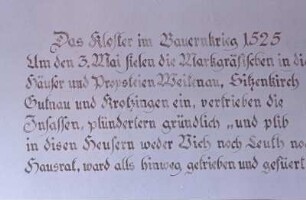 Das Kloster im Bauernkrieg 1525
Um den 3. Mai fielen die Markgräfischen in die
Häuser und Propsteien Weitenau, Sitzenkirch
Gutnau und Krotzingen ein, vertrieben die
Insassen, plünderten gründlich „und plib
in disen Heusern weder Vich noch Leuth no
Hausrat, ward alls hinweg getrieben und gefüert